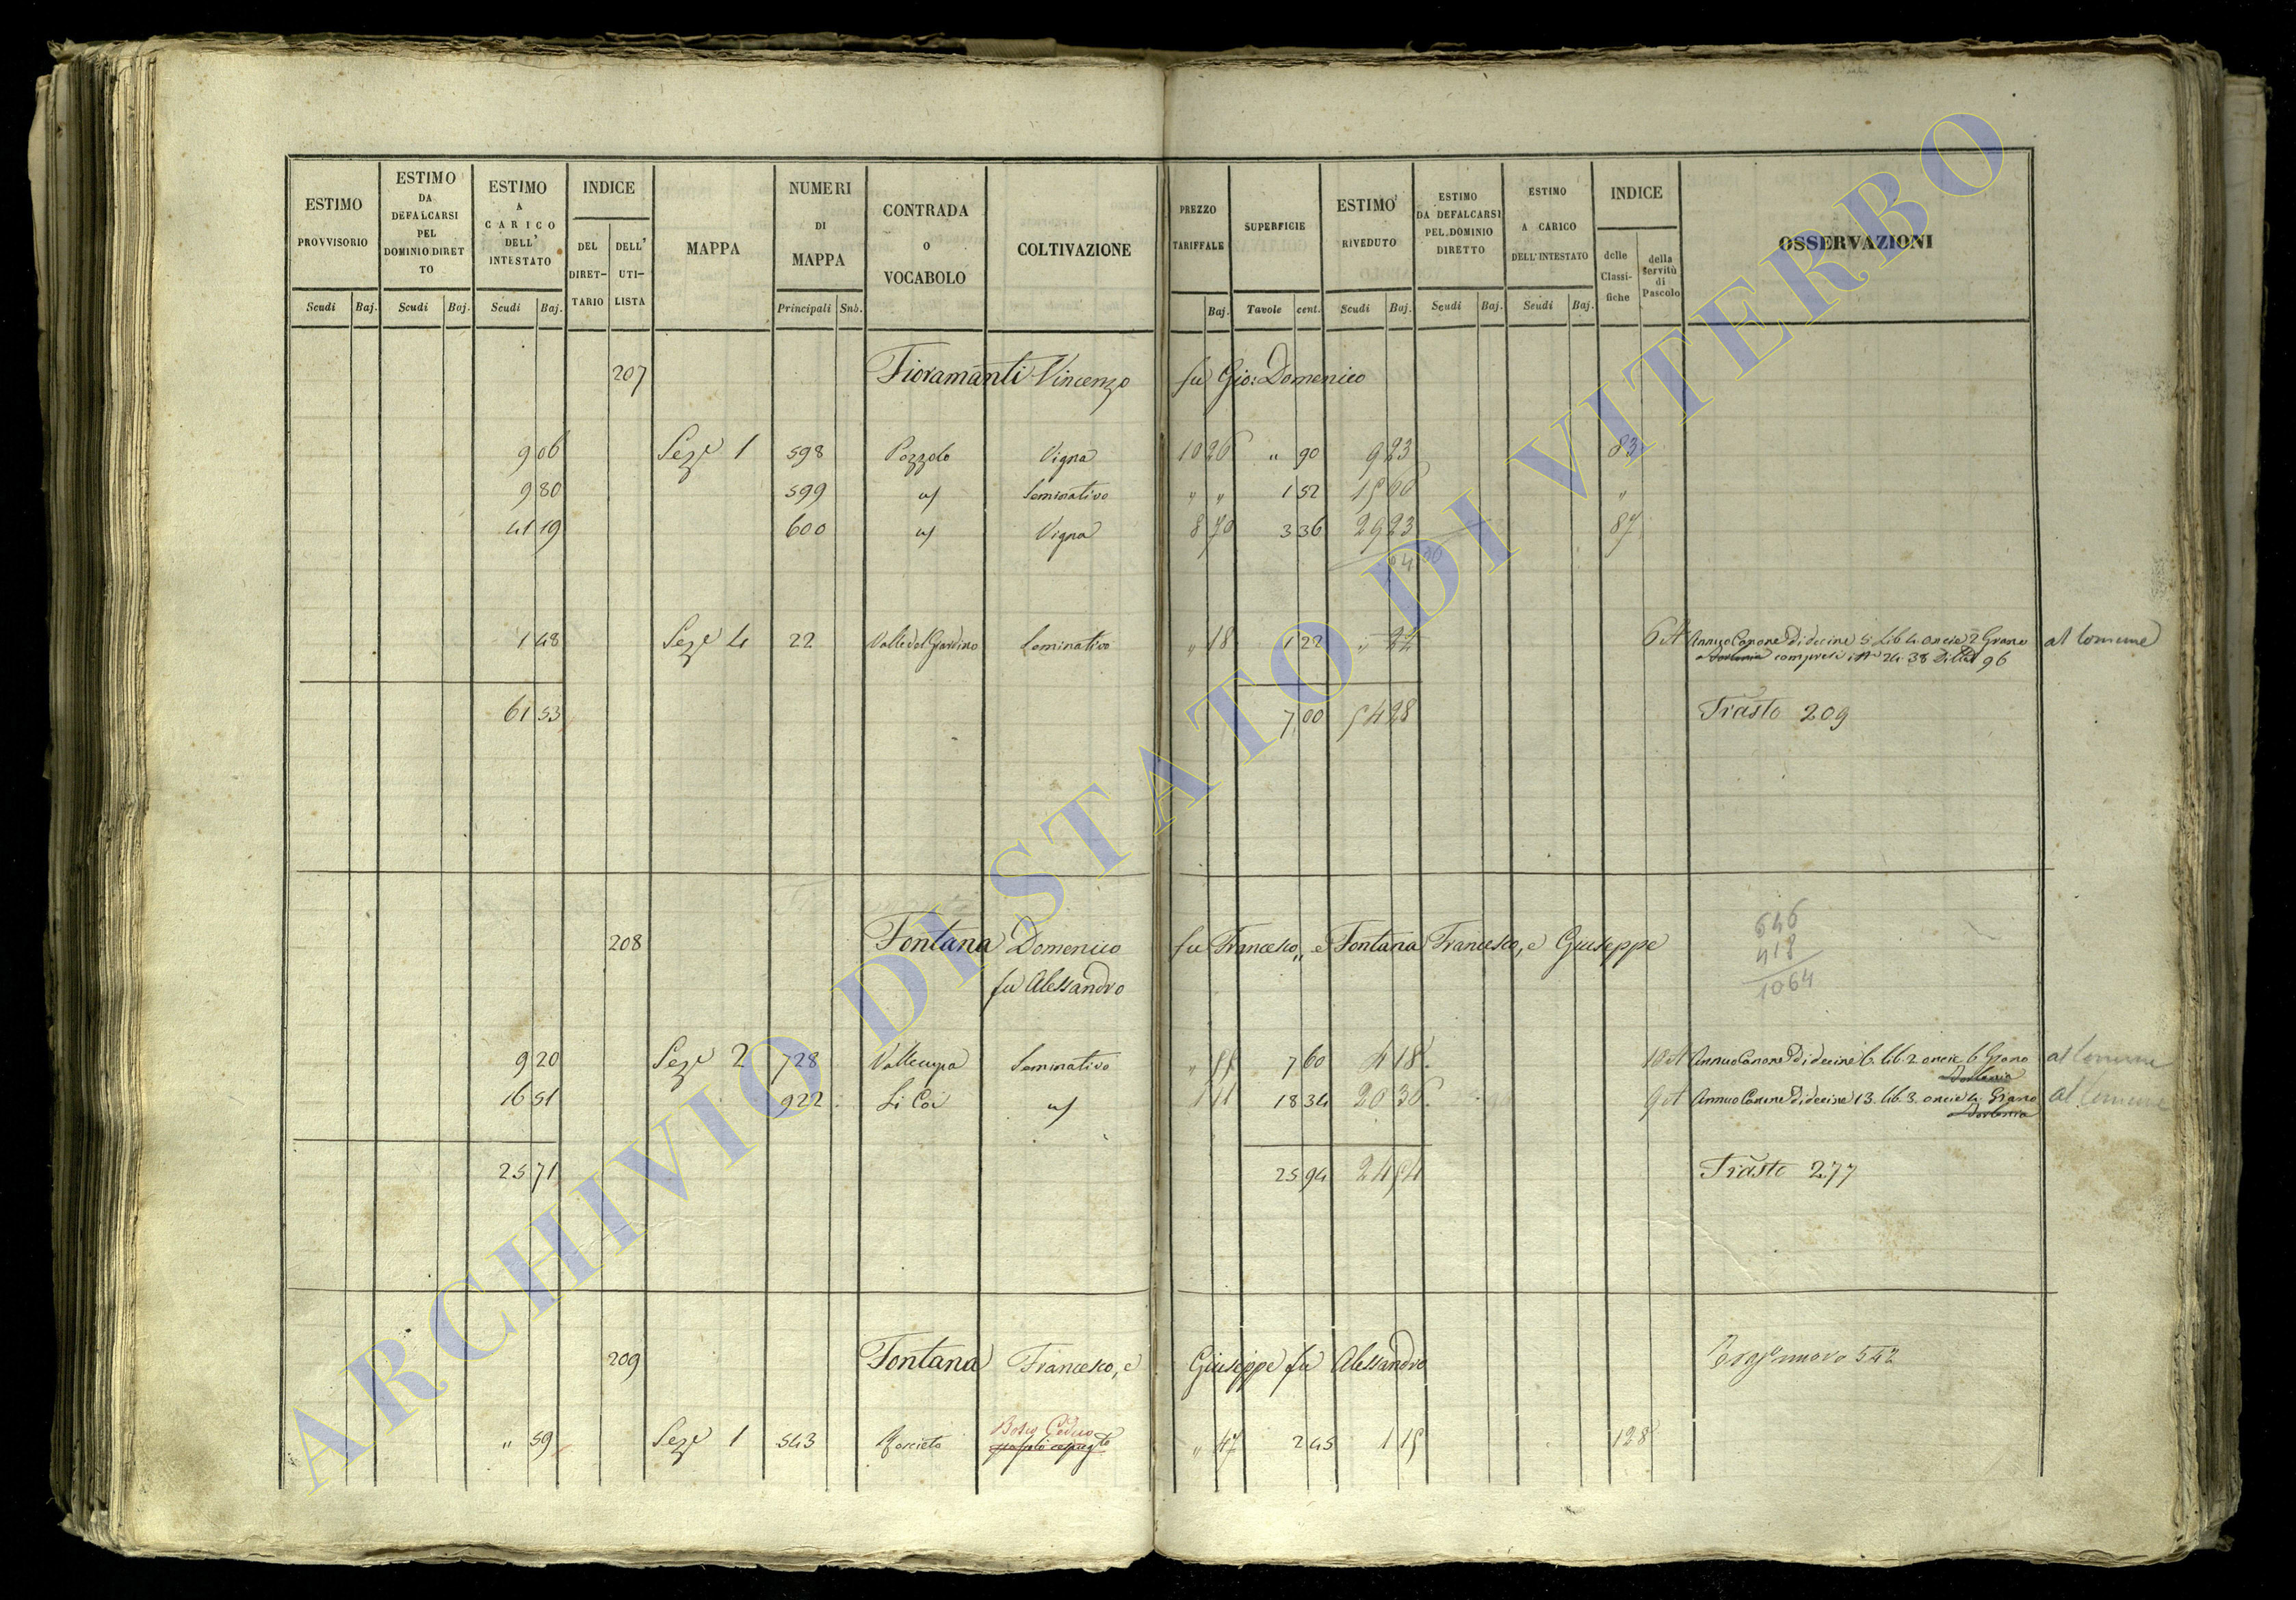 ESTIMO PROVVISORIO | ESTIMO DA DEFALCARSI PEL DOMINIO DIRETTO | ESTIMO A CARICO DELL' INTESTATO | INDICE | MAPPA | NUMERI DI MAPPA | CONTRADA O VOCABOLO | COLTIVAZIONE | PREZZO TARIFFALE | SUPERFICIE | ESTIMO RIVEDUTO | ESTIMO DA DEFALCARSI PEL DOMINIO DIRETTO | ESTIMO A CARICO DELL'INTESTATO | INDICE | OSSERVAZIONI
DEL DIRET-TARIO | DELL' UTI-LISTA | delle Classi-fiche | della servitù di Pascolo
Scudi | Baj. | Scudi | Baj. | Scudi | Baj. | Principali | Sub. | Baj. | Tavole | cent. | Scudi | Baj. | Scudi | Baj. | Scudi | Baj.
207 Fioramanti Vincenzo fu Gio: Domenico
9 06 Seze 1 598 Pozzolo Vigna 10 26 " 90 9 23 83
9 80 599 Seminativo " " 1 52 15 60 "
41 19 600 Vigna 8 70 3 36 29 23 87
1 48 Seze 4 22 Valle del Giardino Seminativo " 18 1 22 " 22 Annuo Canone di decine 5 lib 4 oncie 2 Grano al Comune
compresi 24 38 96
61 53 7 00 54 28 Trasto 209
208 Fontana Domenico fu Francesco, e Fontana Francesco, e Giuseppe
fu Alessandro
646
418
1064
9 20 Seze 2 728 Vallecupa Seminativo " 55 7 60 4 18 Annuo Canone di decine 6 lib. 2 oncie 6 Grano al Comune
16 51 922 Li Coi 1 11 18 34 20 36 Annuo Canone di decine 13 lib 3 oncie 4 Grano al Comune
25 71 25 94 24 54 Trasto 277
209 Fontana Francesco, e Giuseppe fu Alessandro
542
" 59 Seze 1 543 Bosco Ceduo " 47 2 45 1 15 128
ARCHIVIO DI STATO DI VITERBO